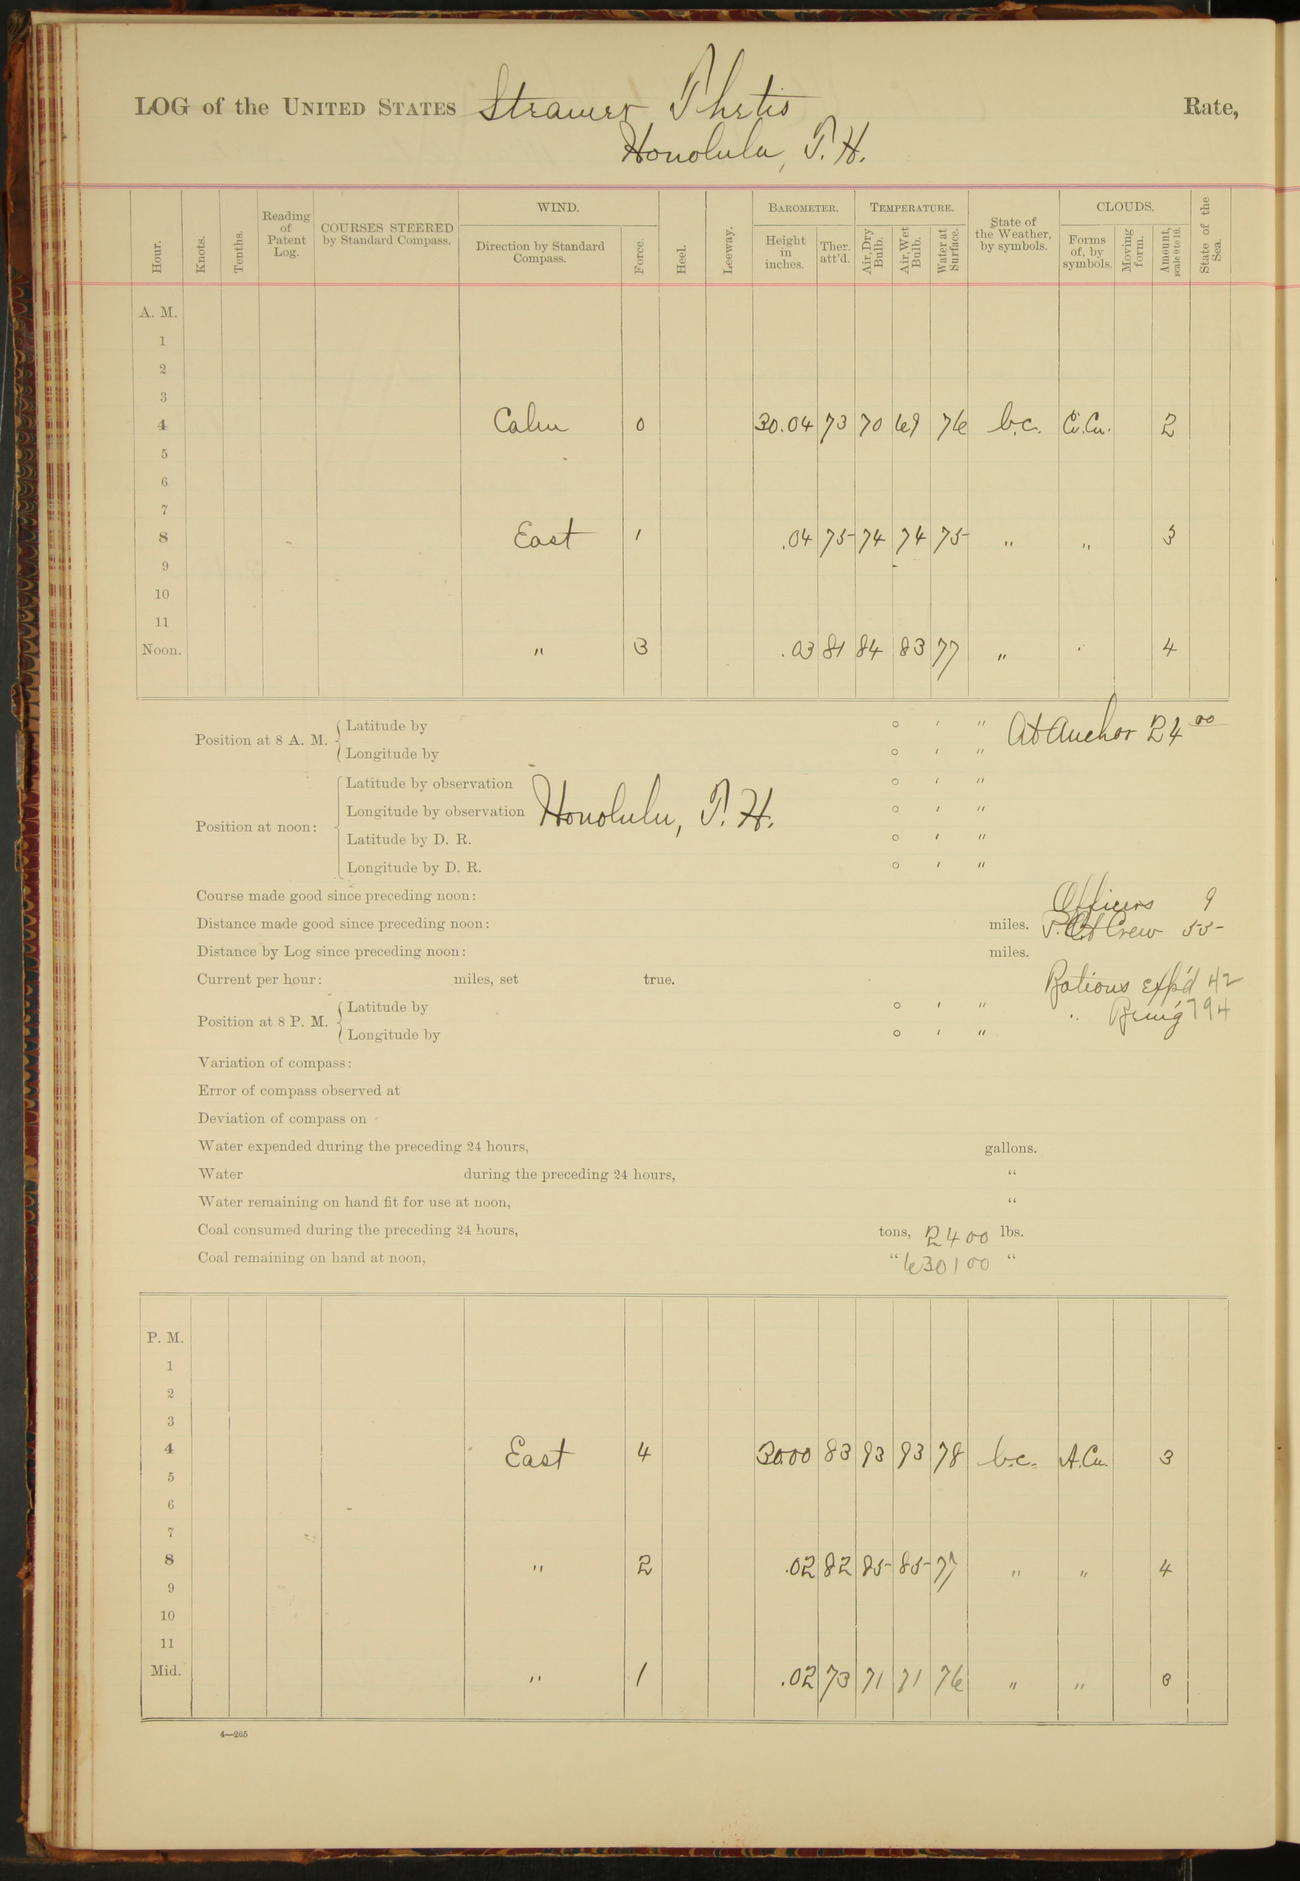 LOG of the UNITED STATES Steamer Thetis Rate,
Honolulu, T. H.
Hour. Knots. Tenths. Reading of Patent Log. COURSES STEERED by Standard Compass. WIND. Direction by Standard Compass. Force. Heel. Leeway. BAROMETER. Height in inches. Ther. att'd. TEMPERATURE. Air, Dry Bulb. Air, Wet Bulb. Water at Surface. State of the Weather, by symbols. CLOUDS. Forms of, by symbols. Moving form. Amount, scale 0 to 10. State of the Sea.
A. M.
1
2
3
4 Calm 0 30.04 73 70 69 76 b.c. Ci.Cu. 2
5
6
7
8 East 1 .04 75 74 74 75 " " 3
9
10
11
Noon. " 3 .03 81 84 83 77 " 4
Position at 8 A. M. Latitude by ° ′ ″ At Anchor 24 00
Longitude by ° ′ ″
Position at noon: Latitude by observation ° ′ ″
Longitude by observation Honolulu, T. H. ° ′ ″
Latitude by D. R. ° ′ ″
Longitude by D. R. ° ′ ″
Course made good since preceding noon: Officers 9
Distance made good since preceding noon: miles. Crew 55
Distance by Log since preceding noon: miles.
Current per hour: miles, set true. Rations exp'd 42
Position at 8 P. M. Latitude by ° ′ ″ " 794
Longitude by ° ′ ″
Variation of compass:
Error of compass observed at
Deviation of compass on
Water expended during the preceding 24 hours, gallons.
Water during the preceding 24 hours, "
Water remaining on hand fit for use at noon, "
Coal consumed during the preceding 24 hours, tons, 2400 lbs.
Coal remaining on hand at noon, " 630100 "
P. M.
1
2
3
4 East 4 30.00 83 93 93 78 b.c. A.Cu. 3
5
6
7
8 " 2 .02 82 85 85 77 " " 4
9
10
11
Mid. " 1 .02 73 71 71 76 " "
4—265